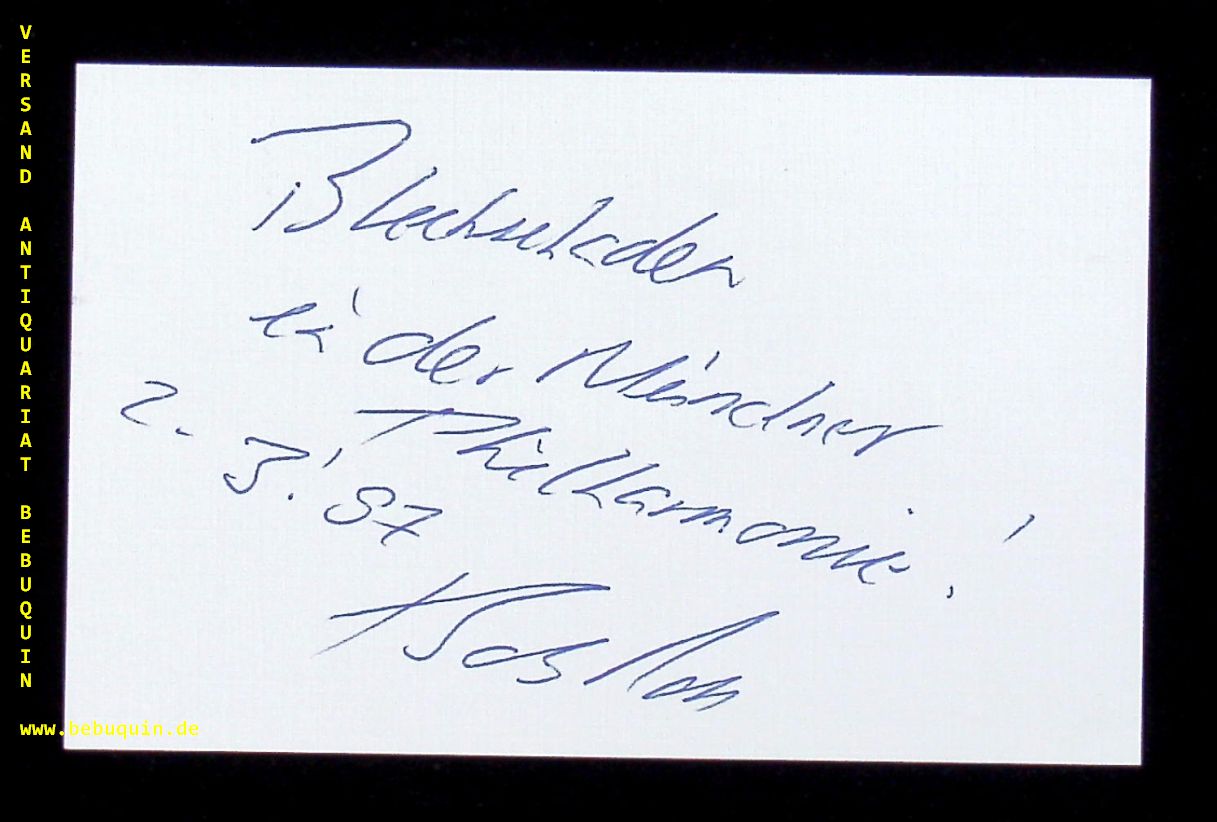 VERSAND ANTIQUARIAT BEBUQUIN
www.bebuquin.de
Blechschaden
in der Münchner
Philharmonie!
2. 3. '87
Bob Ross